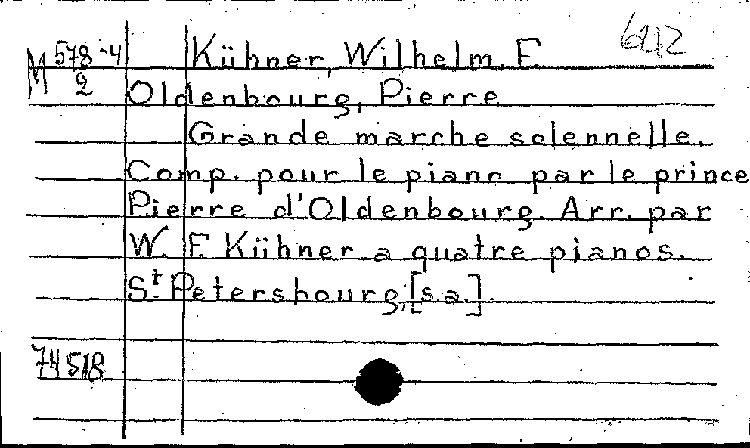 6212
M 578-4 Kühner, Wilhelm F.
2
Oldenbourg, Pierre
Grande marche solennelle.
Comp. pour le piano par le prince
Pierre d'Oldenbourg. Arr. par
W. F. Kühner a quatre pianos.
St Petersbourg, [s.a.]
74518